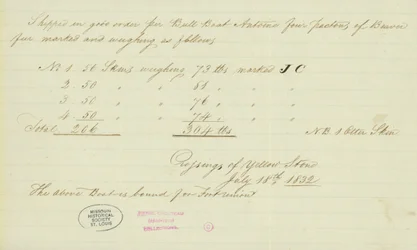 Shipped in good order per Bull Boat Antoine four packs of Beaver
fur marked and weighing as follows
No 1 56 Skins weighing 73 lbs marked J C
2 50 " " 81 " " "
3 50 " " 76 " " "
4 50 " " 74 " " "
Total 206 304 lbs. NB 1 Otter Skin
Crossings of Yellow Stone
July 18th 1832
The above Boat is bound for Fort Union
MISSOURI
HISTORICAL
SOCIETY
ST. LOUIS